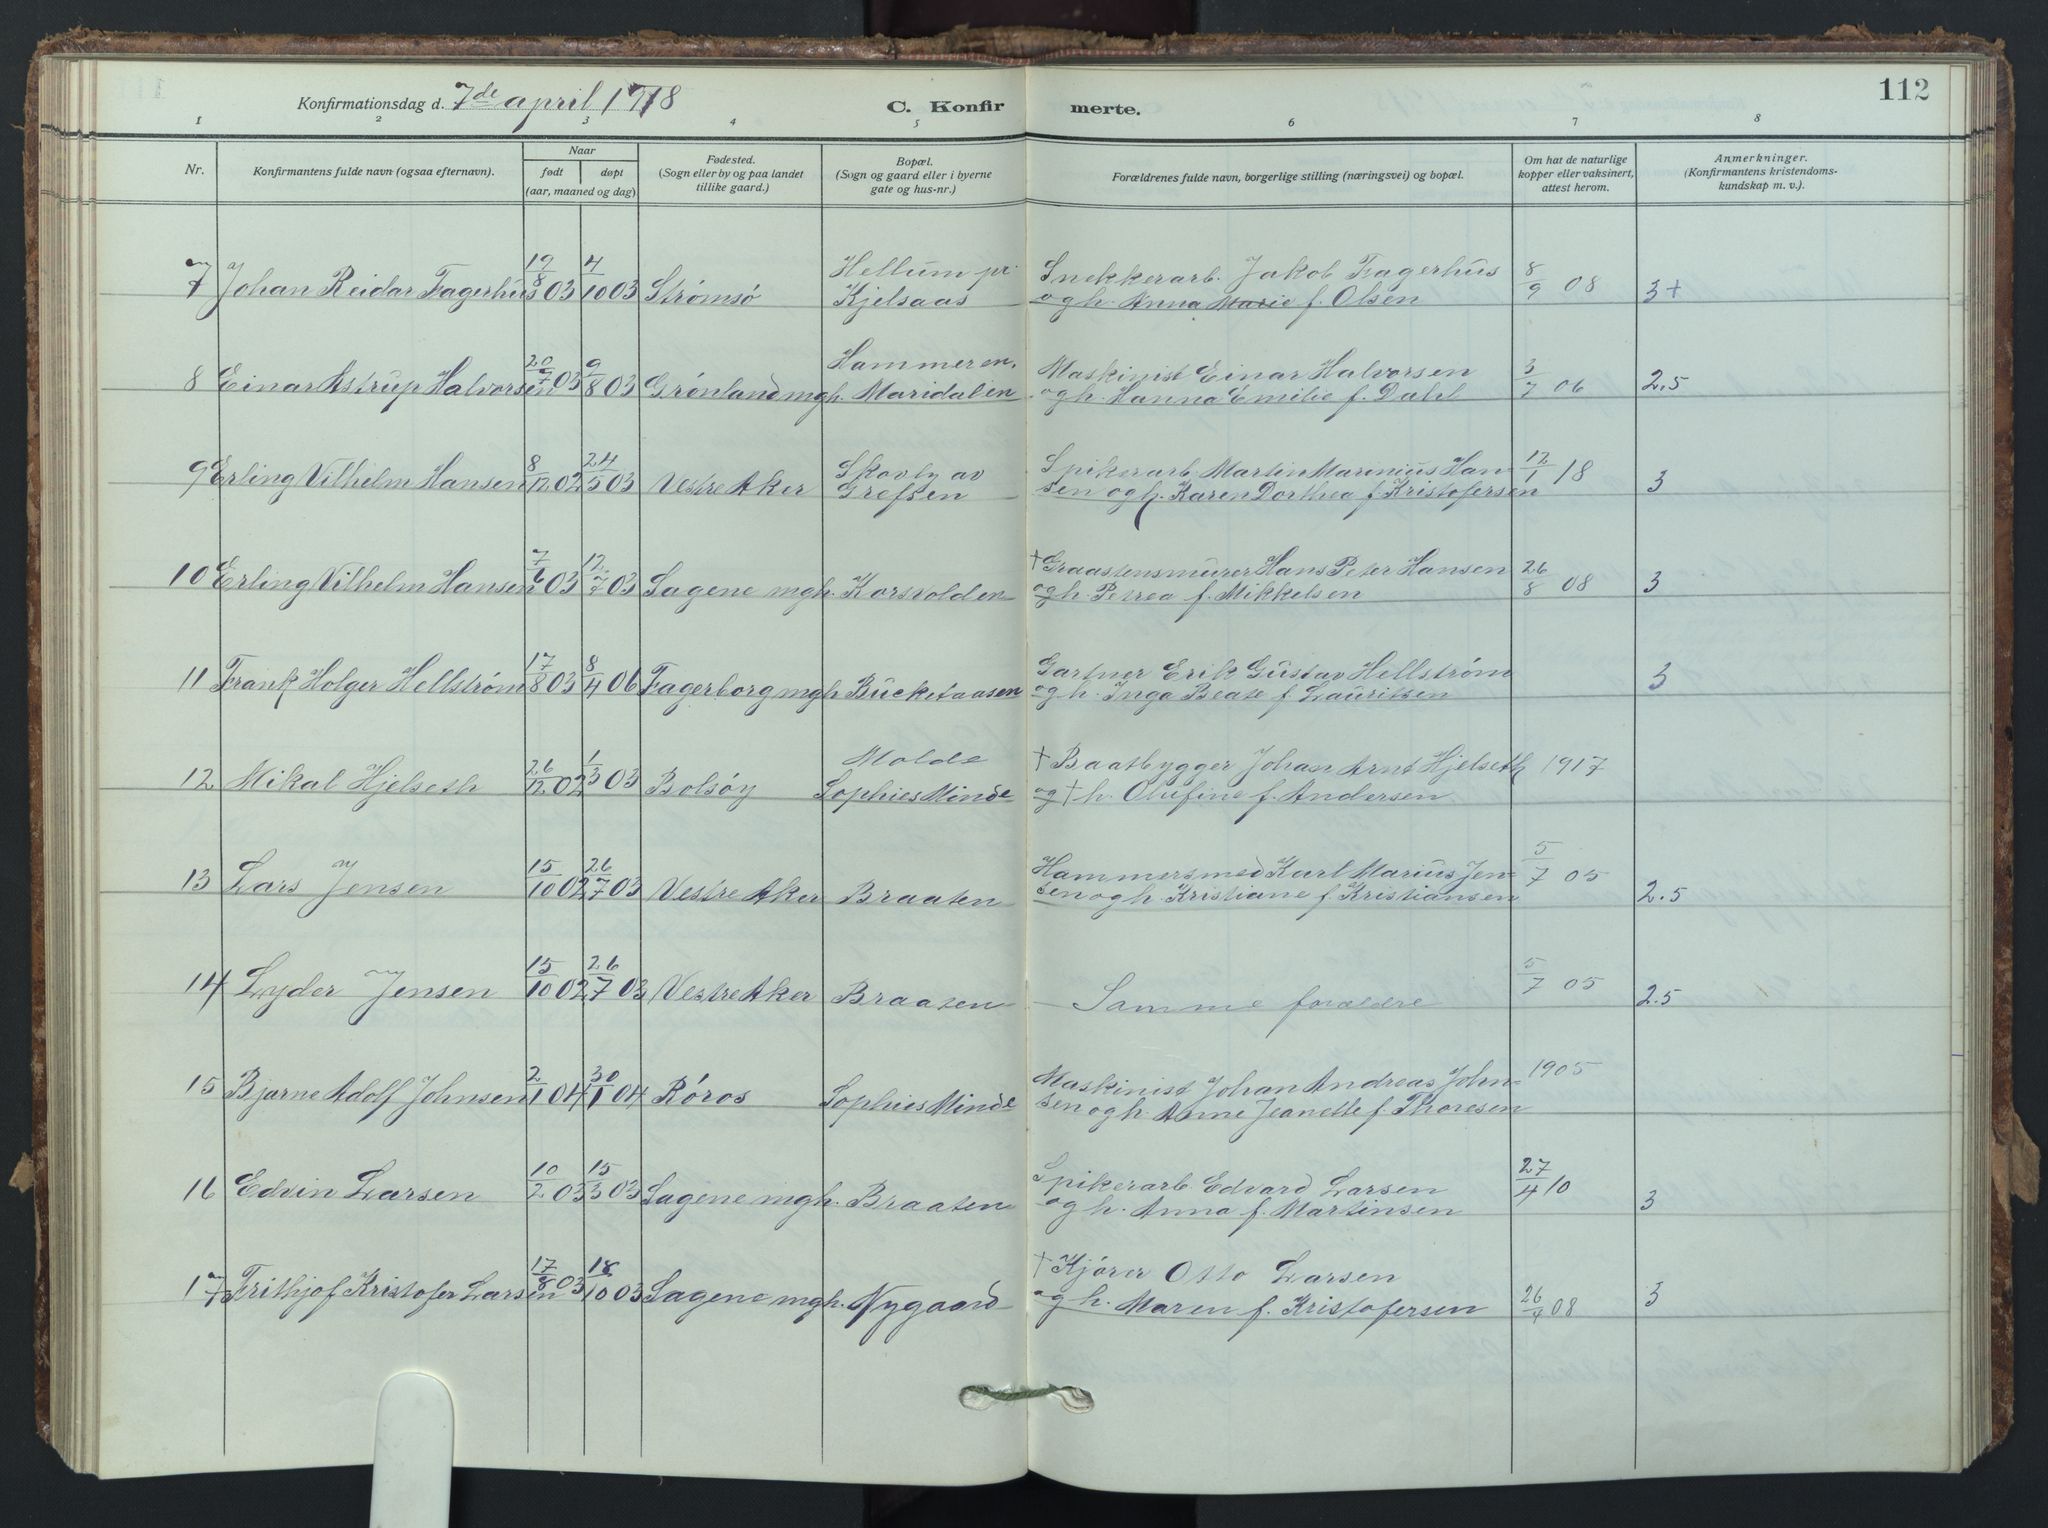 112
Konfirmationsdag d. 7de april 1918 C. Konfirmerte.
1 2 3 4 5 6 7 8
Nr. Konfirmantens fulde navn (ogsaa efternavn). Naar født døpt (aar, maaned og dag) Fødested. (Sogn eller by og paa landet tillike gaard.) Bopæl. (Sogn og gaard eller i byerne gate og hus-nr.) Forældrenes fulde navn, borgerlige stilling (næringsvei) og bopæl. Om hat de naturlige kopper eller vaksinert, attest herom. Anmerkninger. (Konfirmantens kristendoms-kundskap m. v.)
7 Johan Reidar Fagerhus 19/8 03 4/10 03 Strømsø Hellum pr. Kjelsaas Snekkerarb. Jakob Fagerhus 8/9 08 3+
og h. Anna Marie f. Olsen
8 Einar Astrup Halvorsen 20/7 03 9/8 03 Grønland mgh. Hammeren, Maridalen Maskinist Einar Halvorsen 3/7 06 2.5
og h. Hanna Emilie f. Dahl
9 Erling Vilhelm Hansen 8/12 02 24/5 03 Vestre Aker Skovly av Grefsen Spikerarb. Martin Marinius Han- 12/1 18 3
sen og h. Karen Dorthea f. Kristofersen
10 Erling Vilhelm Hansen 7/6 03 12/7 03 Sagene mgh. Korsvolden † Graastensmurer Hans Peter Hansen 26/8 08 3
og h. Petrea f. Mikkelsen
11 Frank Holger Hellstrøm 17/8 03 8/4 06 Fagerborg mgh Bucketaasen Gartner Erik Gustav Hellstrøm 3
og h. Inga Beate f. Lauritsen
12 Mikal Hjelseth 26/12 02 1/3 03 Bolsøy Molde Sophies Minde † Baatbygger Johan Arnt Hjelseth 1917
og † h. Olufine f. Andersen
13 Lars Jensen 15/10 02 26/7 03 Vestre Aker Braaten Hammersmed Karl Marius Jen- 5/7 05 2.5
sen og h. Kristiane f. Kristiansen
14 Lyder Jensen 15/10 02 26/7 03 Vestre Aker Braaten Samme forældre 5/7 05 2.5
15 Bjarne Adolf Johnsen 2/1 04 30/1 04 Røros Sophies Minde Maskinist Johan Andreas John- 1905
sen og h. Anne Jeanette f. Thoresen
16 Edvin Larsen 10/2 03 15/3 03 Sagene mgh. Braaten Spikerarb. Edvard Larsen 27/4 10 3
og h. Anna f. Martinsen
17 Frithjof Kristofer Larsen 17/8 03 18/10 03 Sagene mgh. Nygaard † Kjører Otto Larsen
og h. Maren f. Kristofersen 26/9 08 3